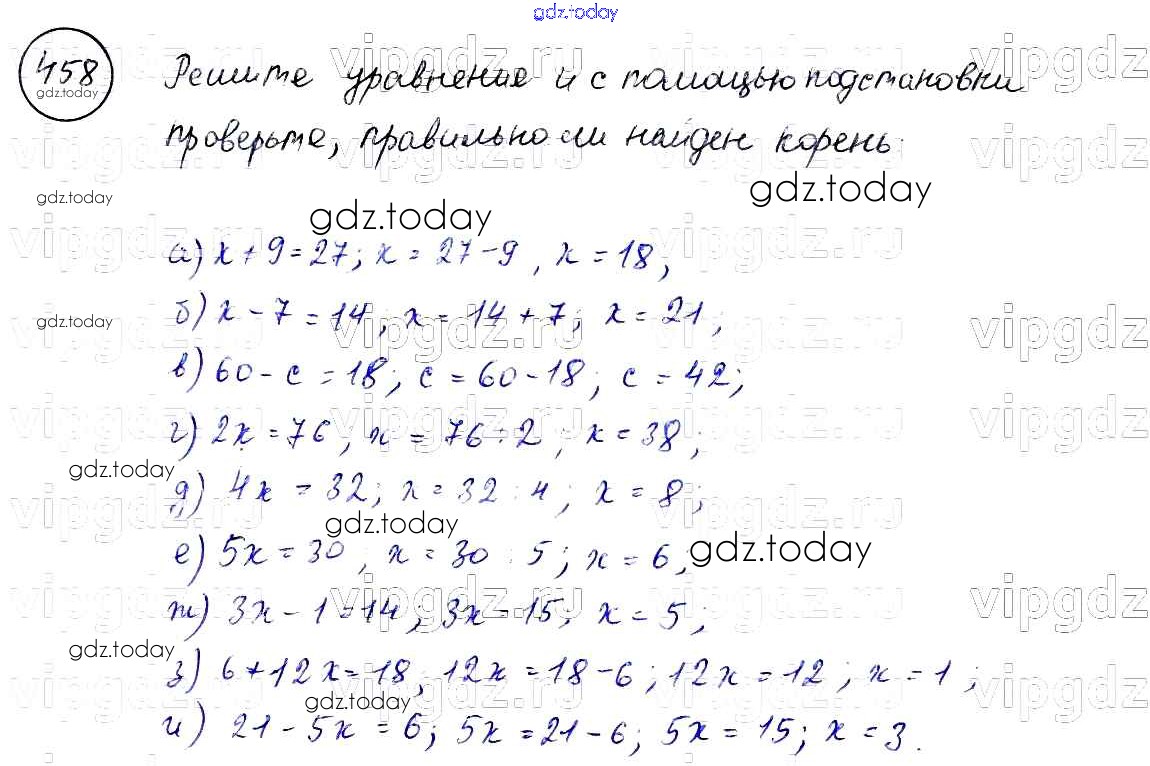 gdz.today
458
gdz.today
Решите уравнение и с помощью подстановки
проверьте, правильно ли найден корень:
gdz.today
gdz.today
gdz.today
а) x + 9 = 27; x = 27 - 9, x = 18,
gdz.today
б) x - 7 = 14, x = 14 + 7; x = 21;
в) 60 - c = 18; c = 60 - 18; c = 42;
г) 2x = 76, x = 76 : 2; x = 38;
gdz.today
д) 4x = 32; x = 32 : 4; x = 8;
gdz.today
е) 5x = 30, x = 30 : 5; x = 6;
gdz.today
ж) 3x - 1 = 14; 3x = 15; x = 5;
gdz.today
з) 6 + 12x = 18, 12x = 18 - 6; 12x = 12; x = 1;
gdz.today
и) 21 - 5x = 6; 5x = 21 - 6; 5x = 15; x = 3.
vipgdz.ru